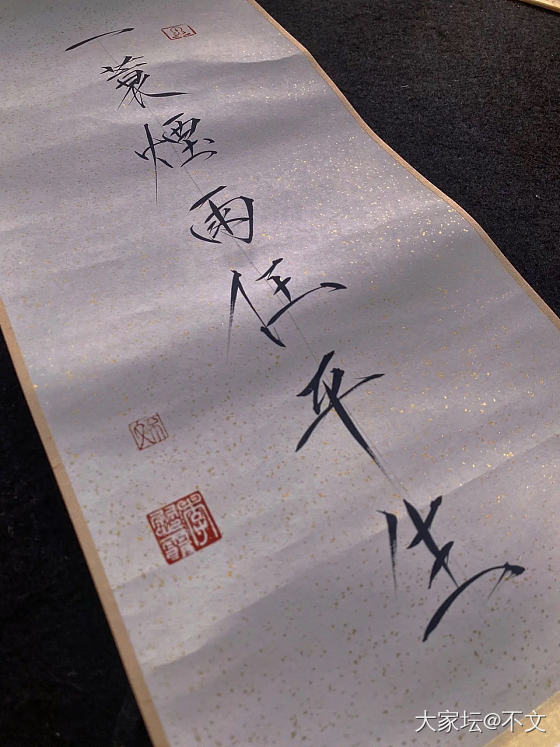 一蓑煙雨任平生
大家坛@不文